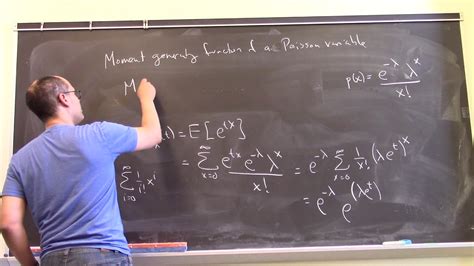 Moment generatg function f a Poisson variable
p(x) = e^{-λ} λ^x / x!
M
(t) = E[e^{tx}]
= Σ_{x=0}^{∞} e^{tx} e^{-λ} λ^x / x! = e^{-λ} Σ_{x=0}^{∞} 1/x! (λe^t)^x
Σ_{i=0}^{∞} 1/i! x^i
= e^{-λ} e^{(λe^t)}